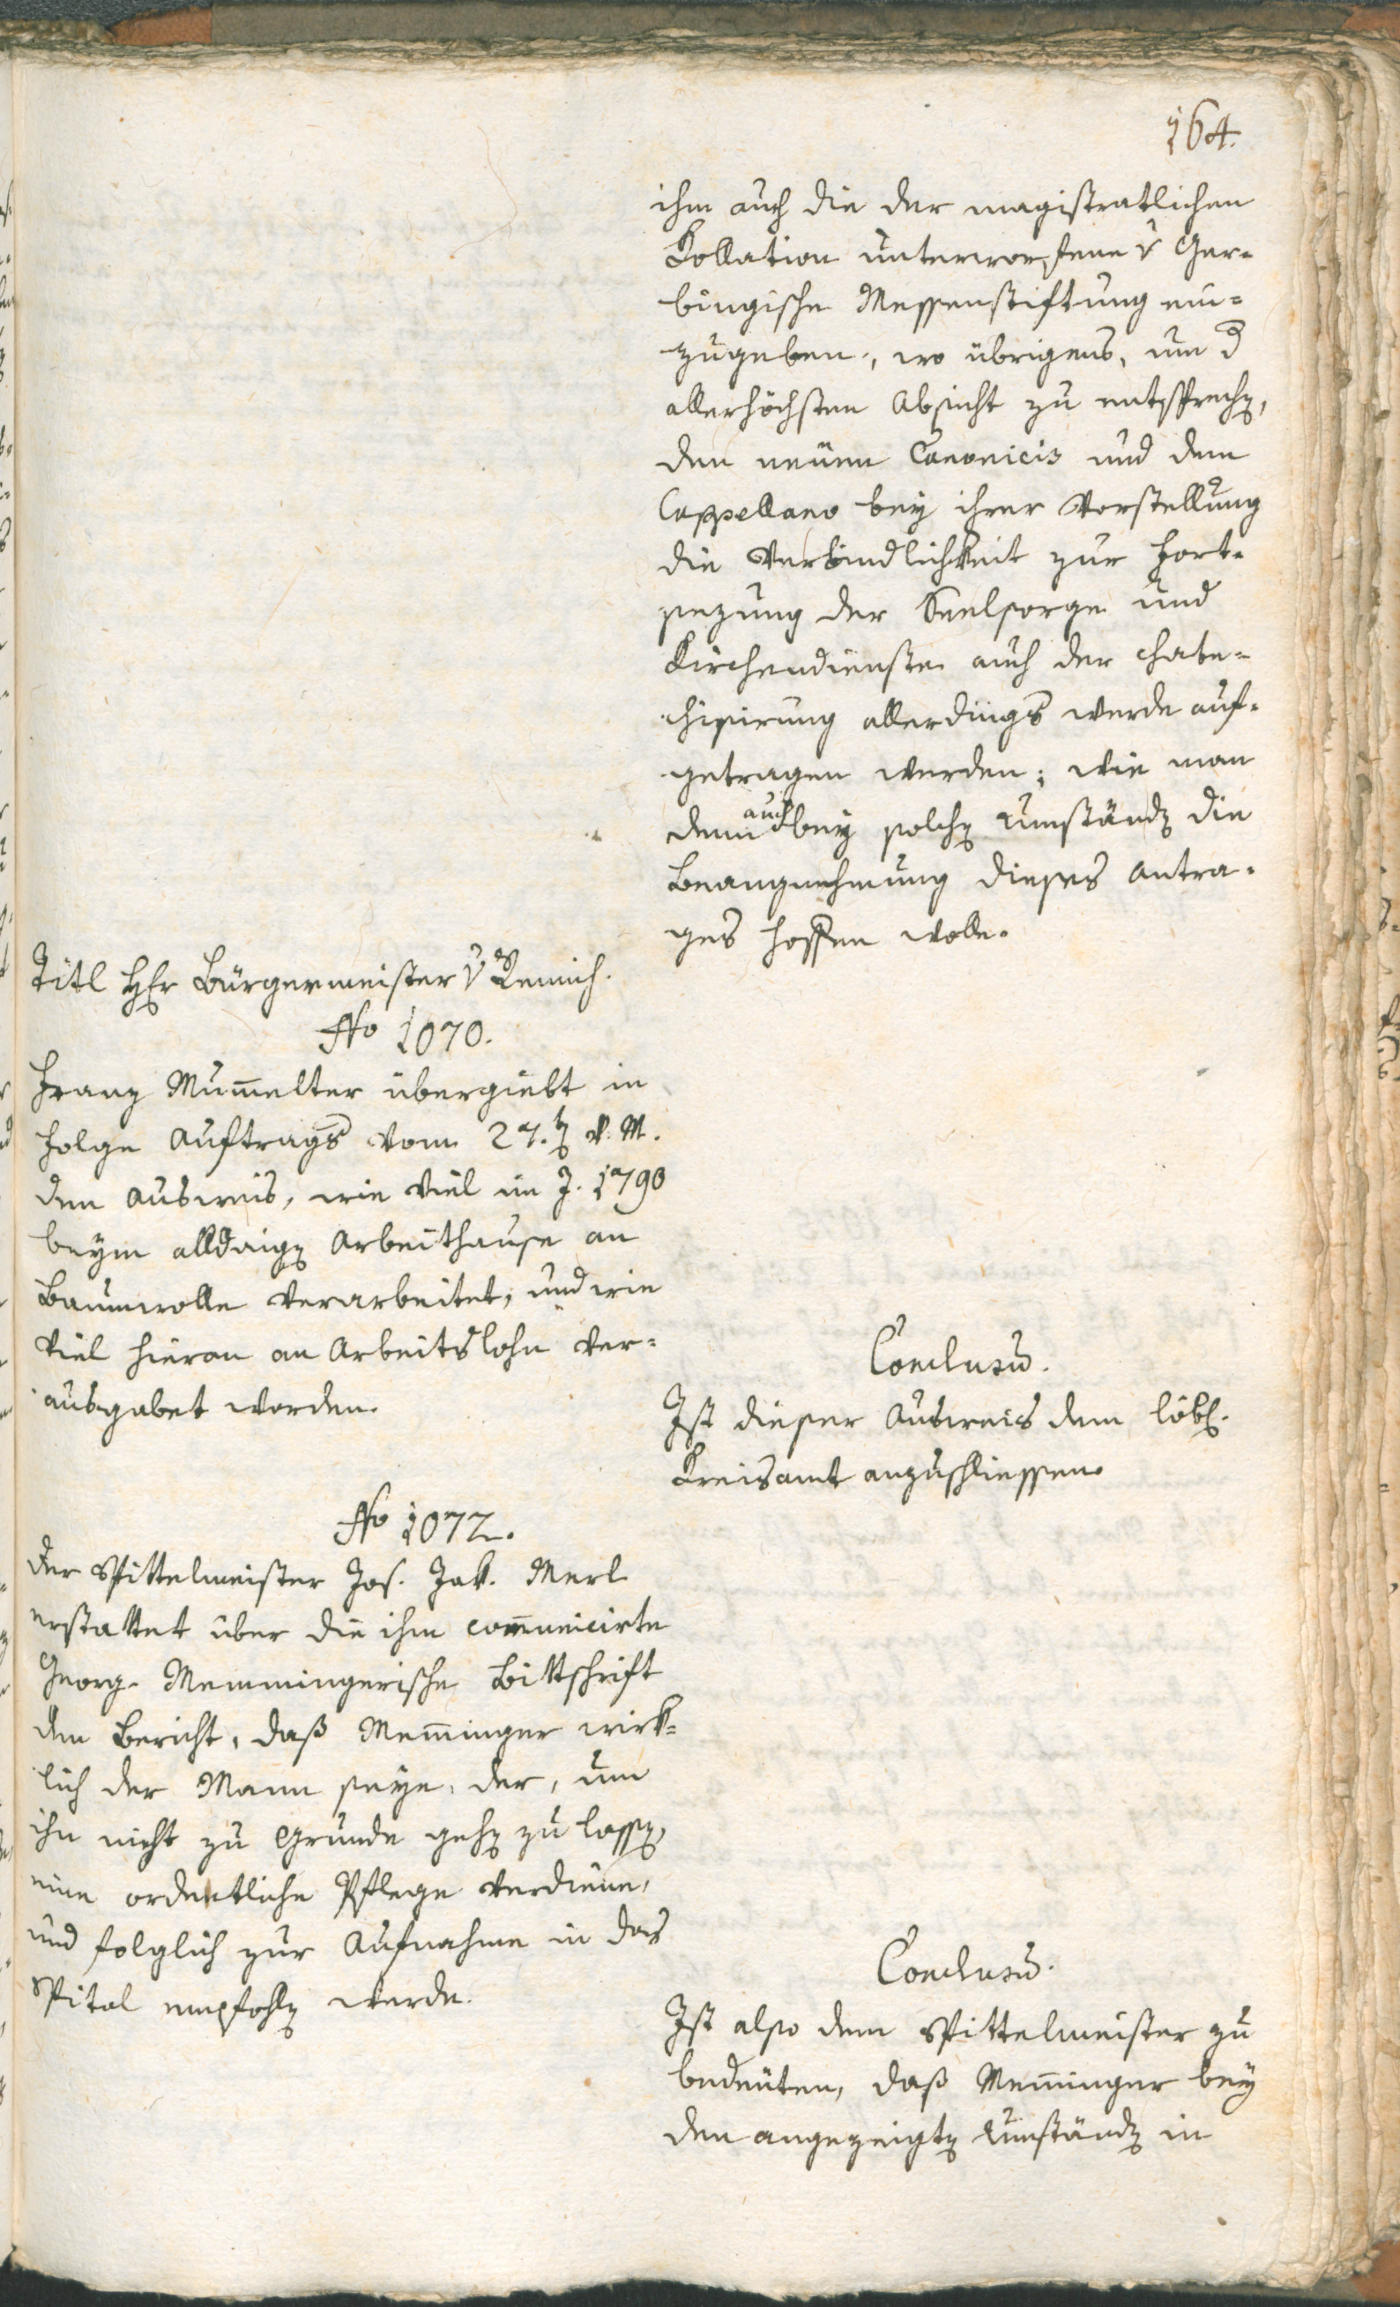 164.
ihm auch die der magistratlichen
Kollation unterworfene v Ger-
bingische Messenstiftung ein-
zugeben, wo übrigens, um d
allerhöchsten Absicht zu entsprechen,
den neuen Canonicis und dem
Cappellano bey ihrer Vorstellung
die Verbindlichkeit zur Fort-
sezung der Seelsorge und
Kirchendienste auch der chate-
chisirung allerdings werde auf-
getragen werden; wie man
denn auch bey solchen Umständen die
Beangnehmung dieses Antra-
ges hoffen wolle.
Titl Hr Bürgermeister v Remich.
No 1070.
Franz Mum̄elter übergiebt in
Folge Auftrags vom 27.ten v. M.
den Ausweis, wie viel im J. 1790
beym alldaigen Arbeithause an
Baumwolle verarbeitet, und wie
viel hievon an Arbeitslohn ver-
ausgabet worden.
Conclusum.
Ist dieser Ausweis dem löbl.
Kreisamt anzuschliessen.
No 1072.
Der Spittelmeister Jos. Jak. Merl
erstattet über die ihm com̄unicirte
Georg-Memmingerische Bittschrift
den Bericht, daß Mem̄inger wirk-
lich der Mann seye, der, um
ihn nicht zu Grunde gehen zu lassen,
eine ordentliche Pflege verdiene,
und folglich zur Aufnahme in das
Spital empfohlen werde.
Conclusum.
Ist also dem Spittelmeister zu
bedeuten, daß Mem̄inger bey
den angezeigten Umständen in